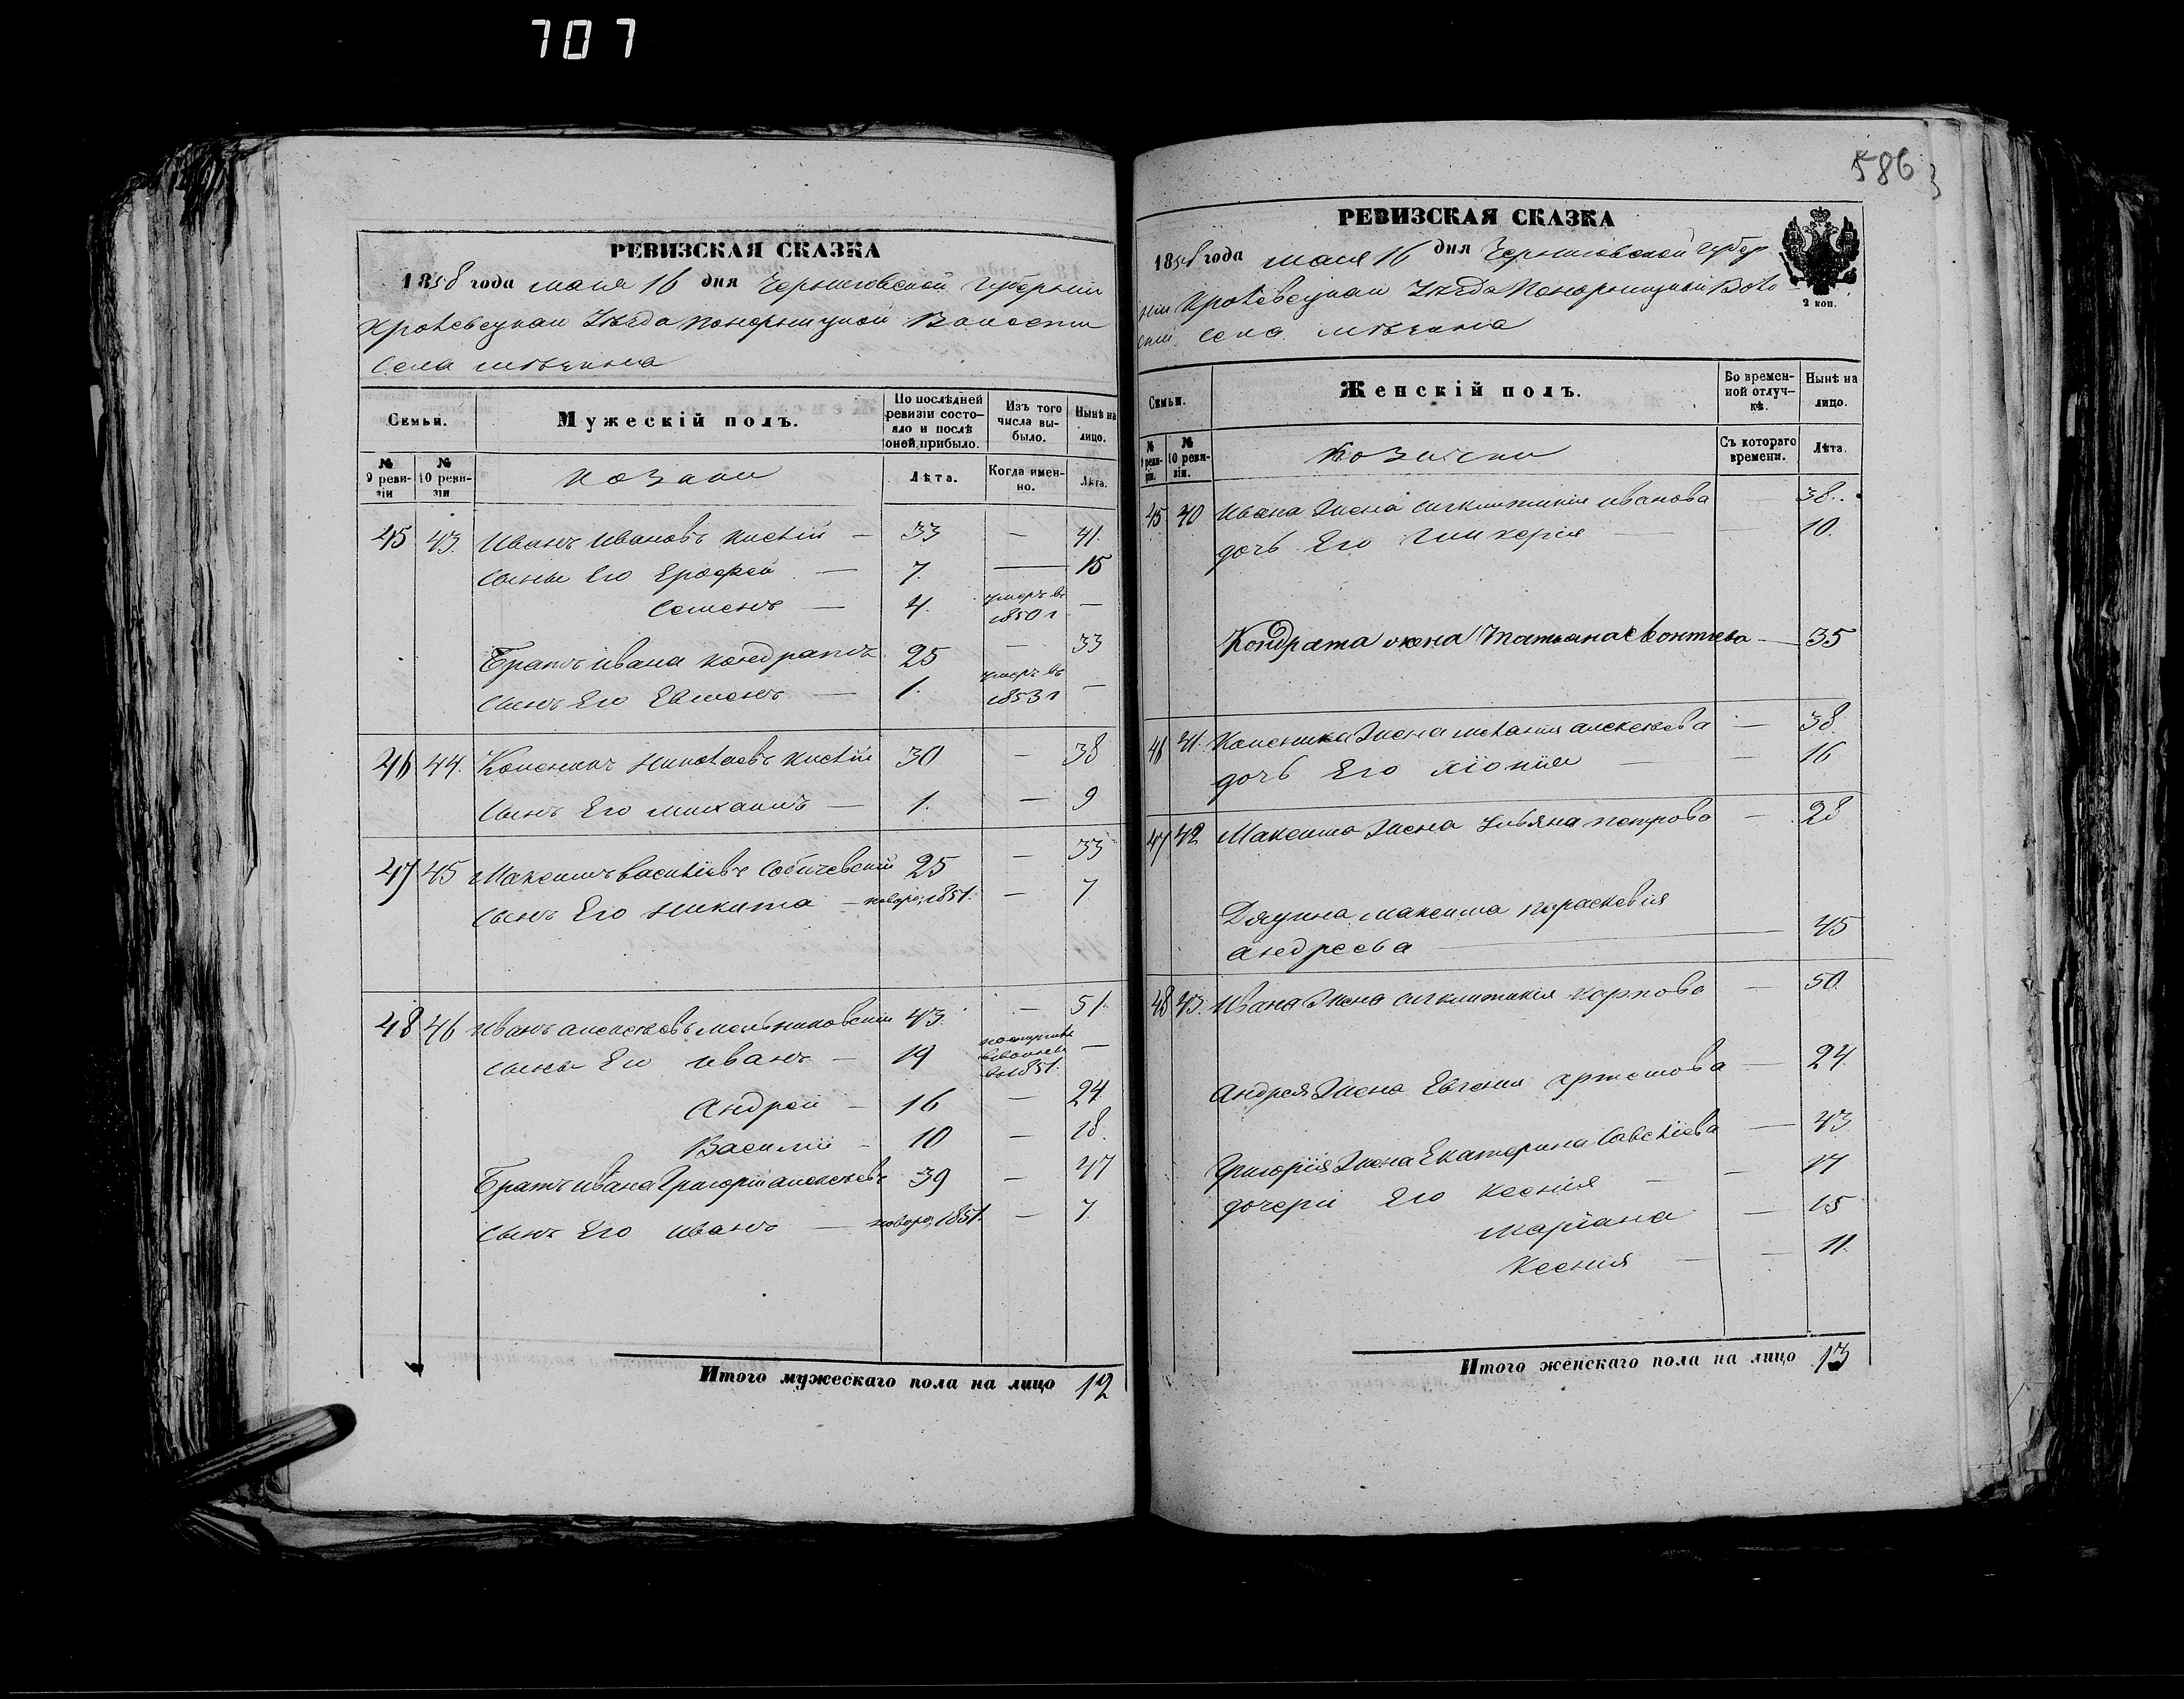 707
РЕВИЗСКАЯ СКАЗКА
1858 года мая 16 дня Черниговской Губерніи
Кролевецкаго Уѣзда Понорницкой Волости
Села
Семьи.
Мужескій полъ.
По послѣдней ревизіи состояло и послѣ оней прибыло.
Изъ того числа выбыло.
Нынѣ на лицо.
№ 9 ревизіи
№ 10 ревизіи
козаки
Лѣта.
Когда именно.
Лѣта.
45 43 Иванъ Ивановъ Кислій — 33 — 41.
сыны Его Ерофей — 7. — 15
Семенъ — 4. умеръ въ 1850 г —
Братъ Ивана Кондратъ 25 — 33
сынъ Его Евменъ — 1. умеръ въ 1853 г —
46 44. Николаевъ Кислій 30 — 38
сынъ Его Михаилъ — 1. — 9
47 45 Максимъ Василіевъ Собичевскій 25 — 33
сынъ Его Никита — новоро: 1851. — 7
48 46 Иванъ Алексѣевъ Мельниковскій 43. — 51.
сыны Его Иванъ — 19 въ 1851. —
Андрей — 16 — 24
Василій — 10 — 18.
Братъ Ивана Григорій Алексѣевъ 39 — 47
сынъ Его Иванъ — новоро: 1851. — 7.
Итого мужескаго пола на лицо 12
586
РЕВИЗСКАЯ СКАЗКА
1858 года мая 16 дня Черниговской Губер
ніи Кролевецкаго Уѣзда Понорницкой Воло
сти Села
2 коп.
Семьи.
Женскій полъ.
Во временной отлучкѣ.
Нынѣ на лицо.
№ 9 ревизіи.
№ 10 ревизіи.
Козачки
Съ котораго времени.
Лѣта.
45 40 Ивана Жена Сигклитикія Иванова — 38.
дочь Его Гликерія — — 10.
Кондрата жена Татьяна Леонтіева — 35
46 41. Жена Меланія Алексѣева — 38.
дочь Его — — 16
47 42 Максима Жена Ульяна Петрова — 28
Максима Параскевія
Андреева — 45
48 43. Ивана Жена Сигклитикія Карпова — 50.
Андрея Жена Евгенія Артемова — 24.
Григорія Жена Екатерина Савеліева — 43.
дочери Его Ксенія — — 17
Маріана — 15
Ксенія — — 11.
Итого женскаго пола на лицо 13